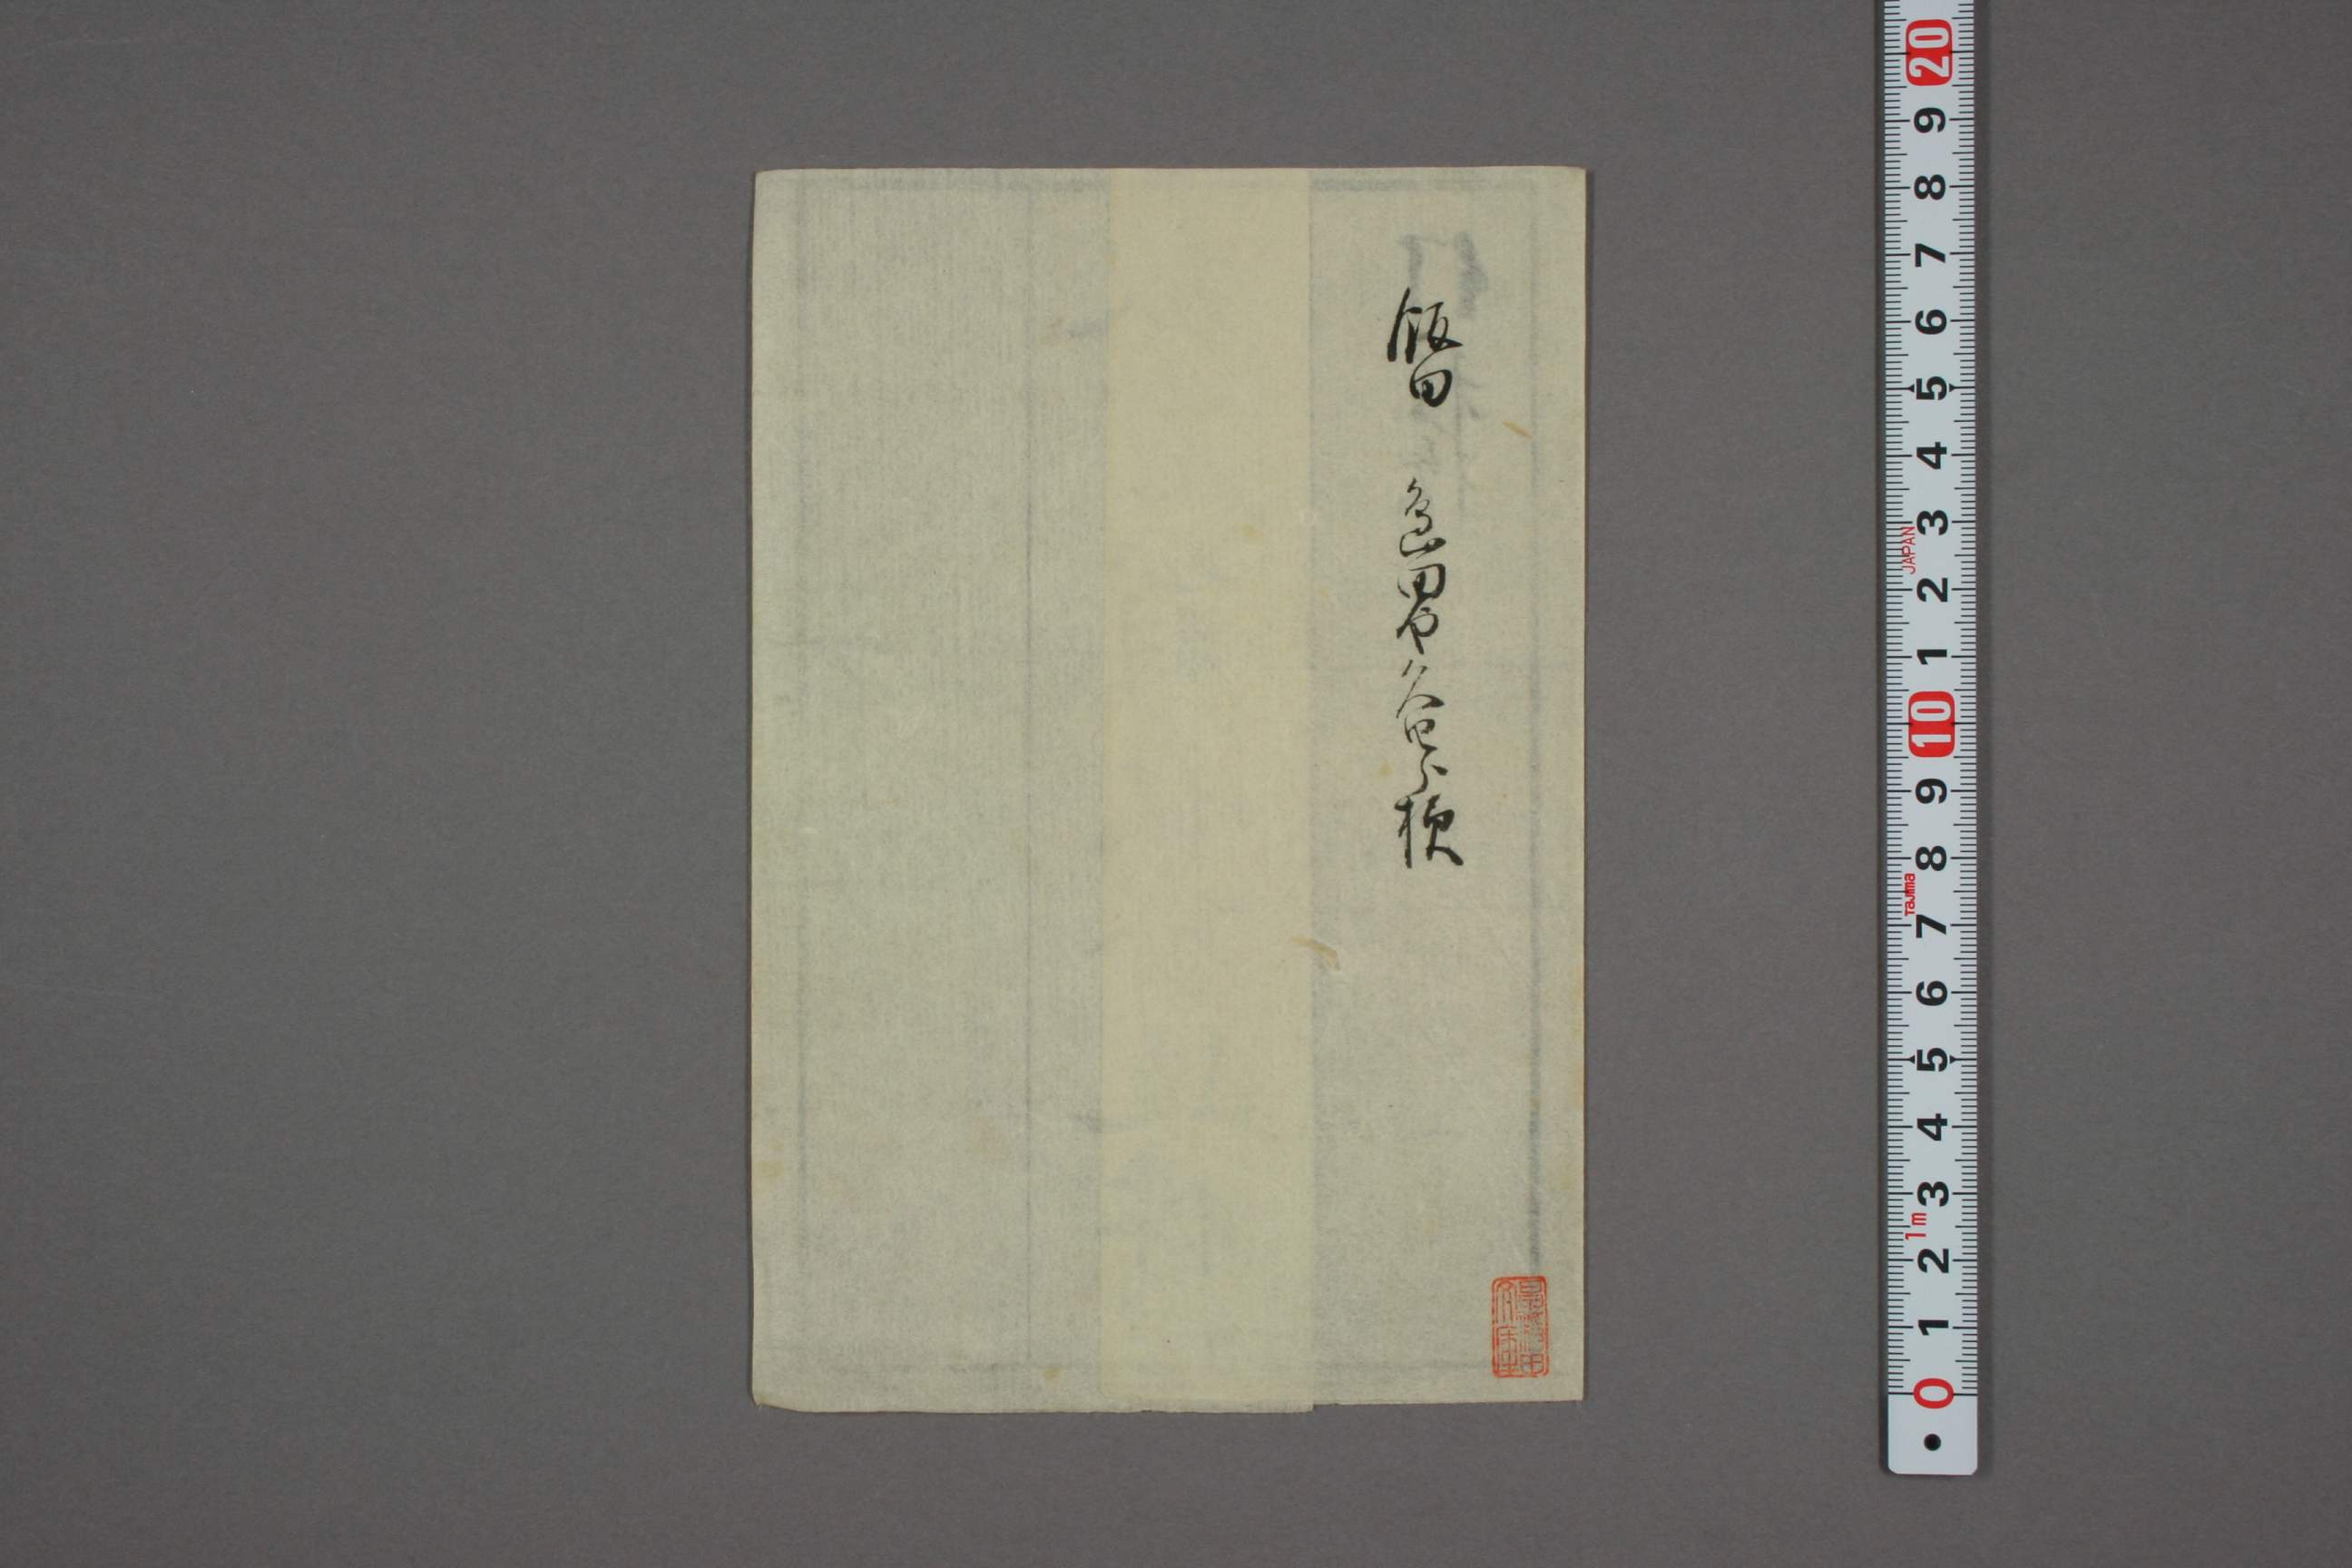 飯田 島田や久四郎様
20
9
8
7
6
5
4
3
JAPAN
2
1
10
9
8
Tajima
7
6
5
4
3
1m
2
1
0